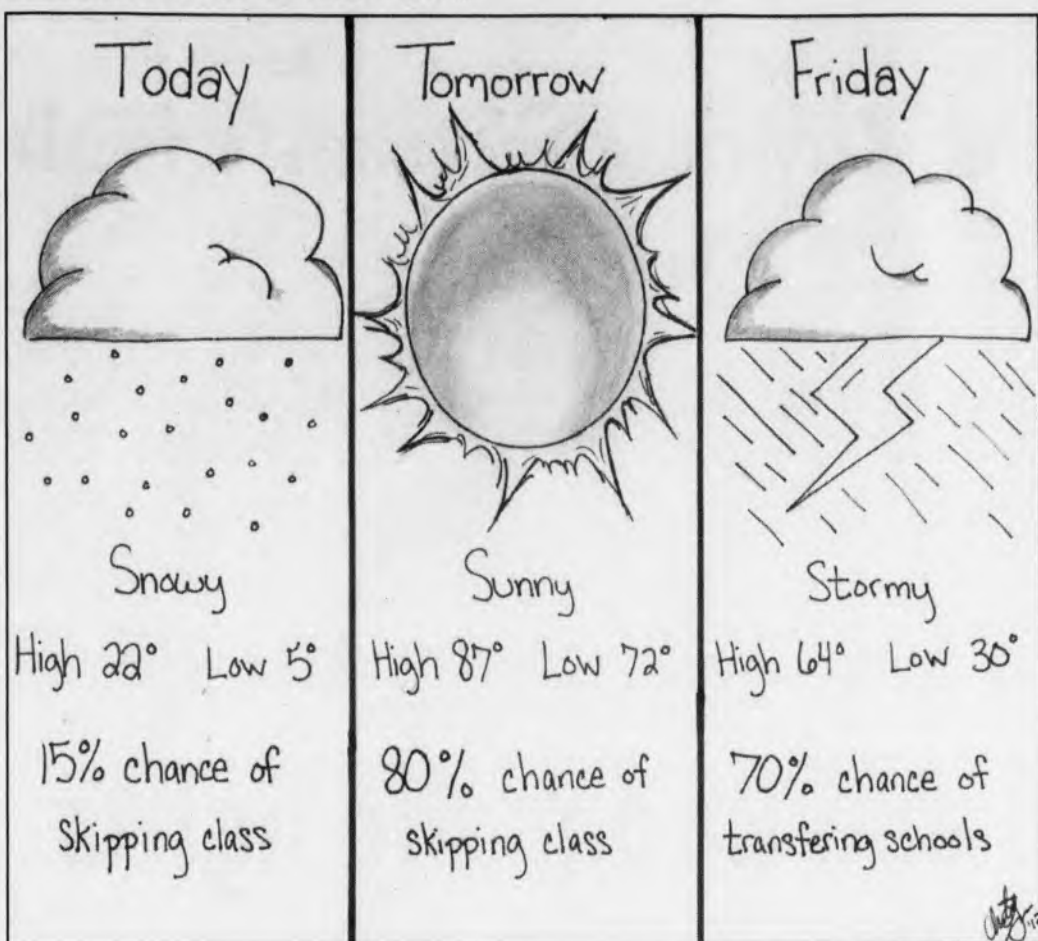 Today
Snowy
High 22° Low 5°
15% chance of
skipping class
Tomorrow
Sunny
High 87° Low 72°
80% chance of
skipping class
Friday
Stormy
High 64° Low 30°
70% chance of
transfering schools